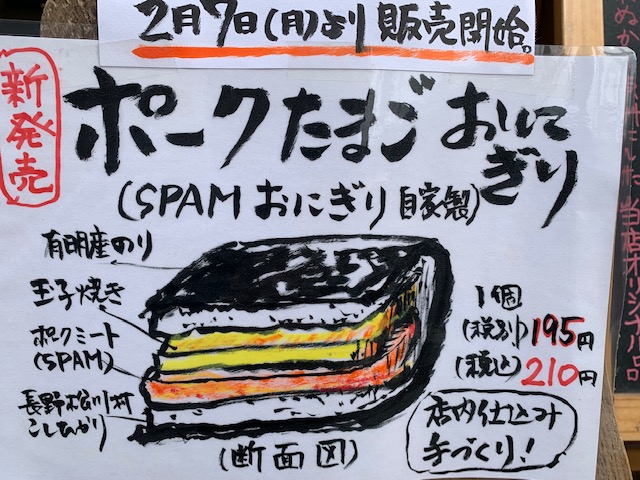 2月7日(月)より販売開始。
新発売
ポークたまごおにぎり
(SPAMおにぎり自家製)
有明産のり
玉子焼き
ポークミート
(SPAM)
長野松川村
こしひかり
(断面図)
1個
(税別)195円
(税込)210円
店内仕込み
手づくり!
当店オリジナル品